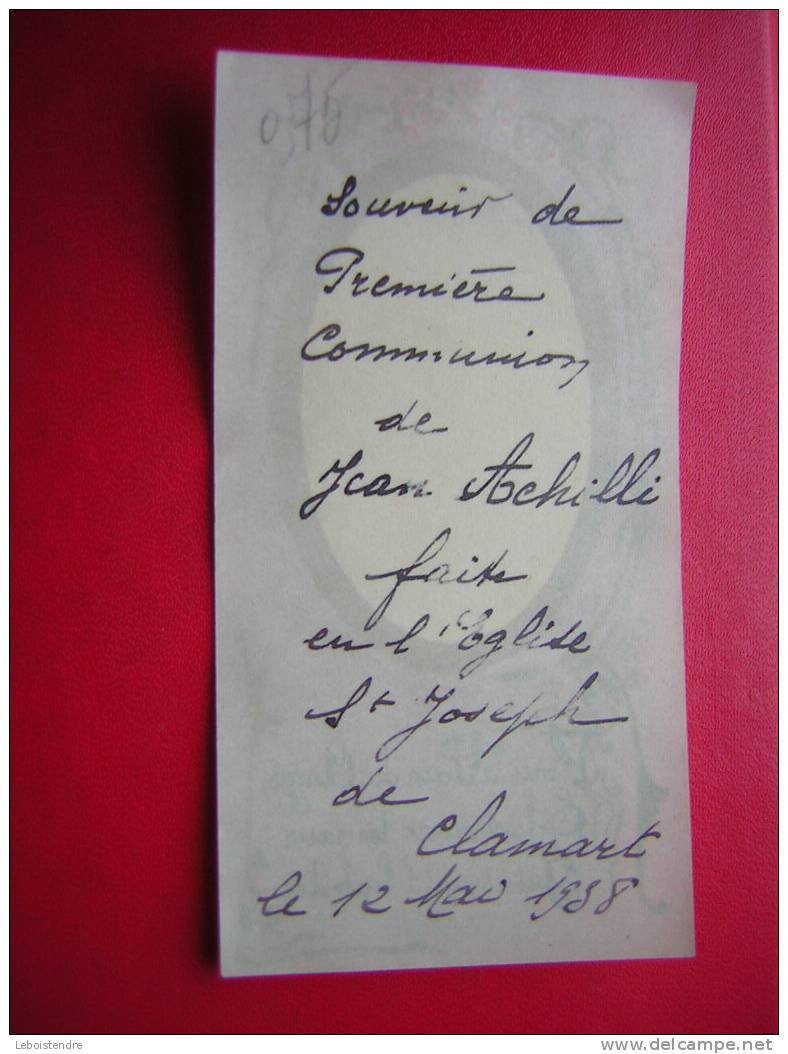 0,75
Souvenir de
Première
Communion
de
Jean Achilli
faite
en l'Eglise
St Joseph
de
Clamart
le 12 Mai 1938
Leboistendre
delcampe.net